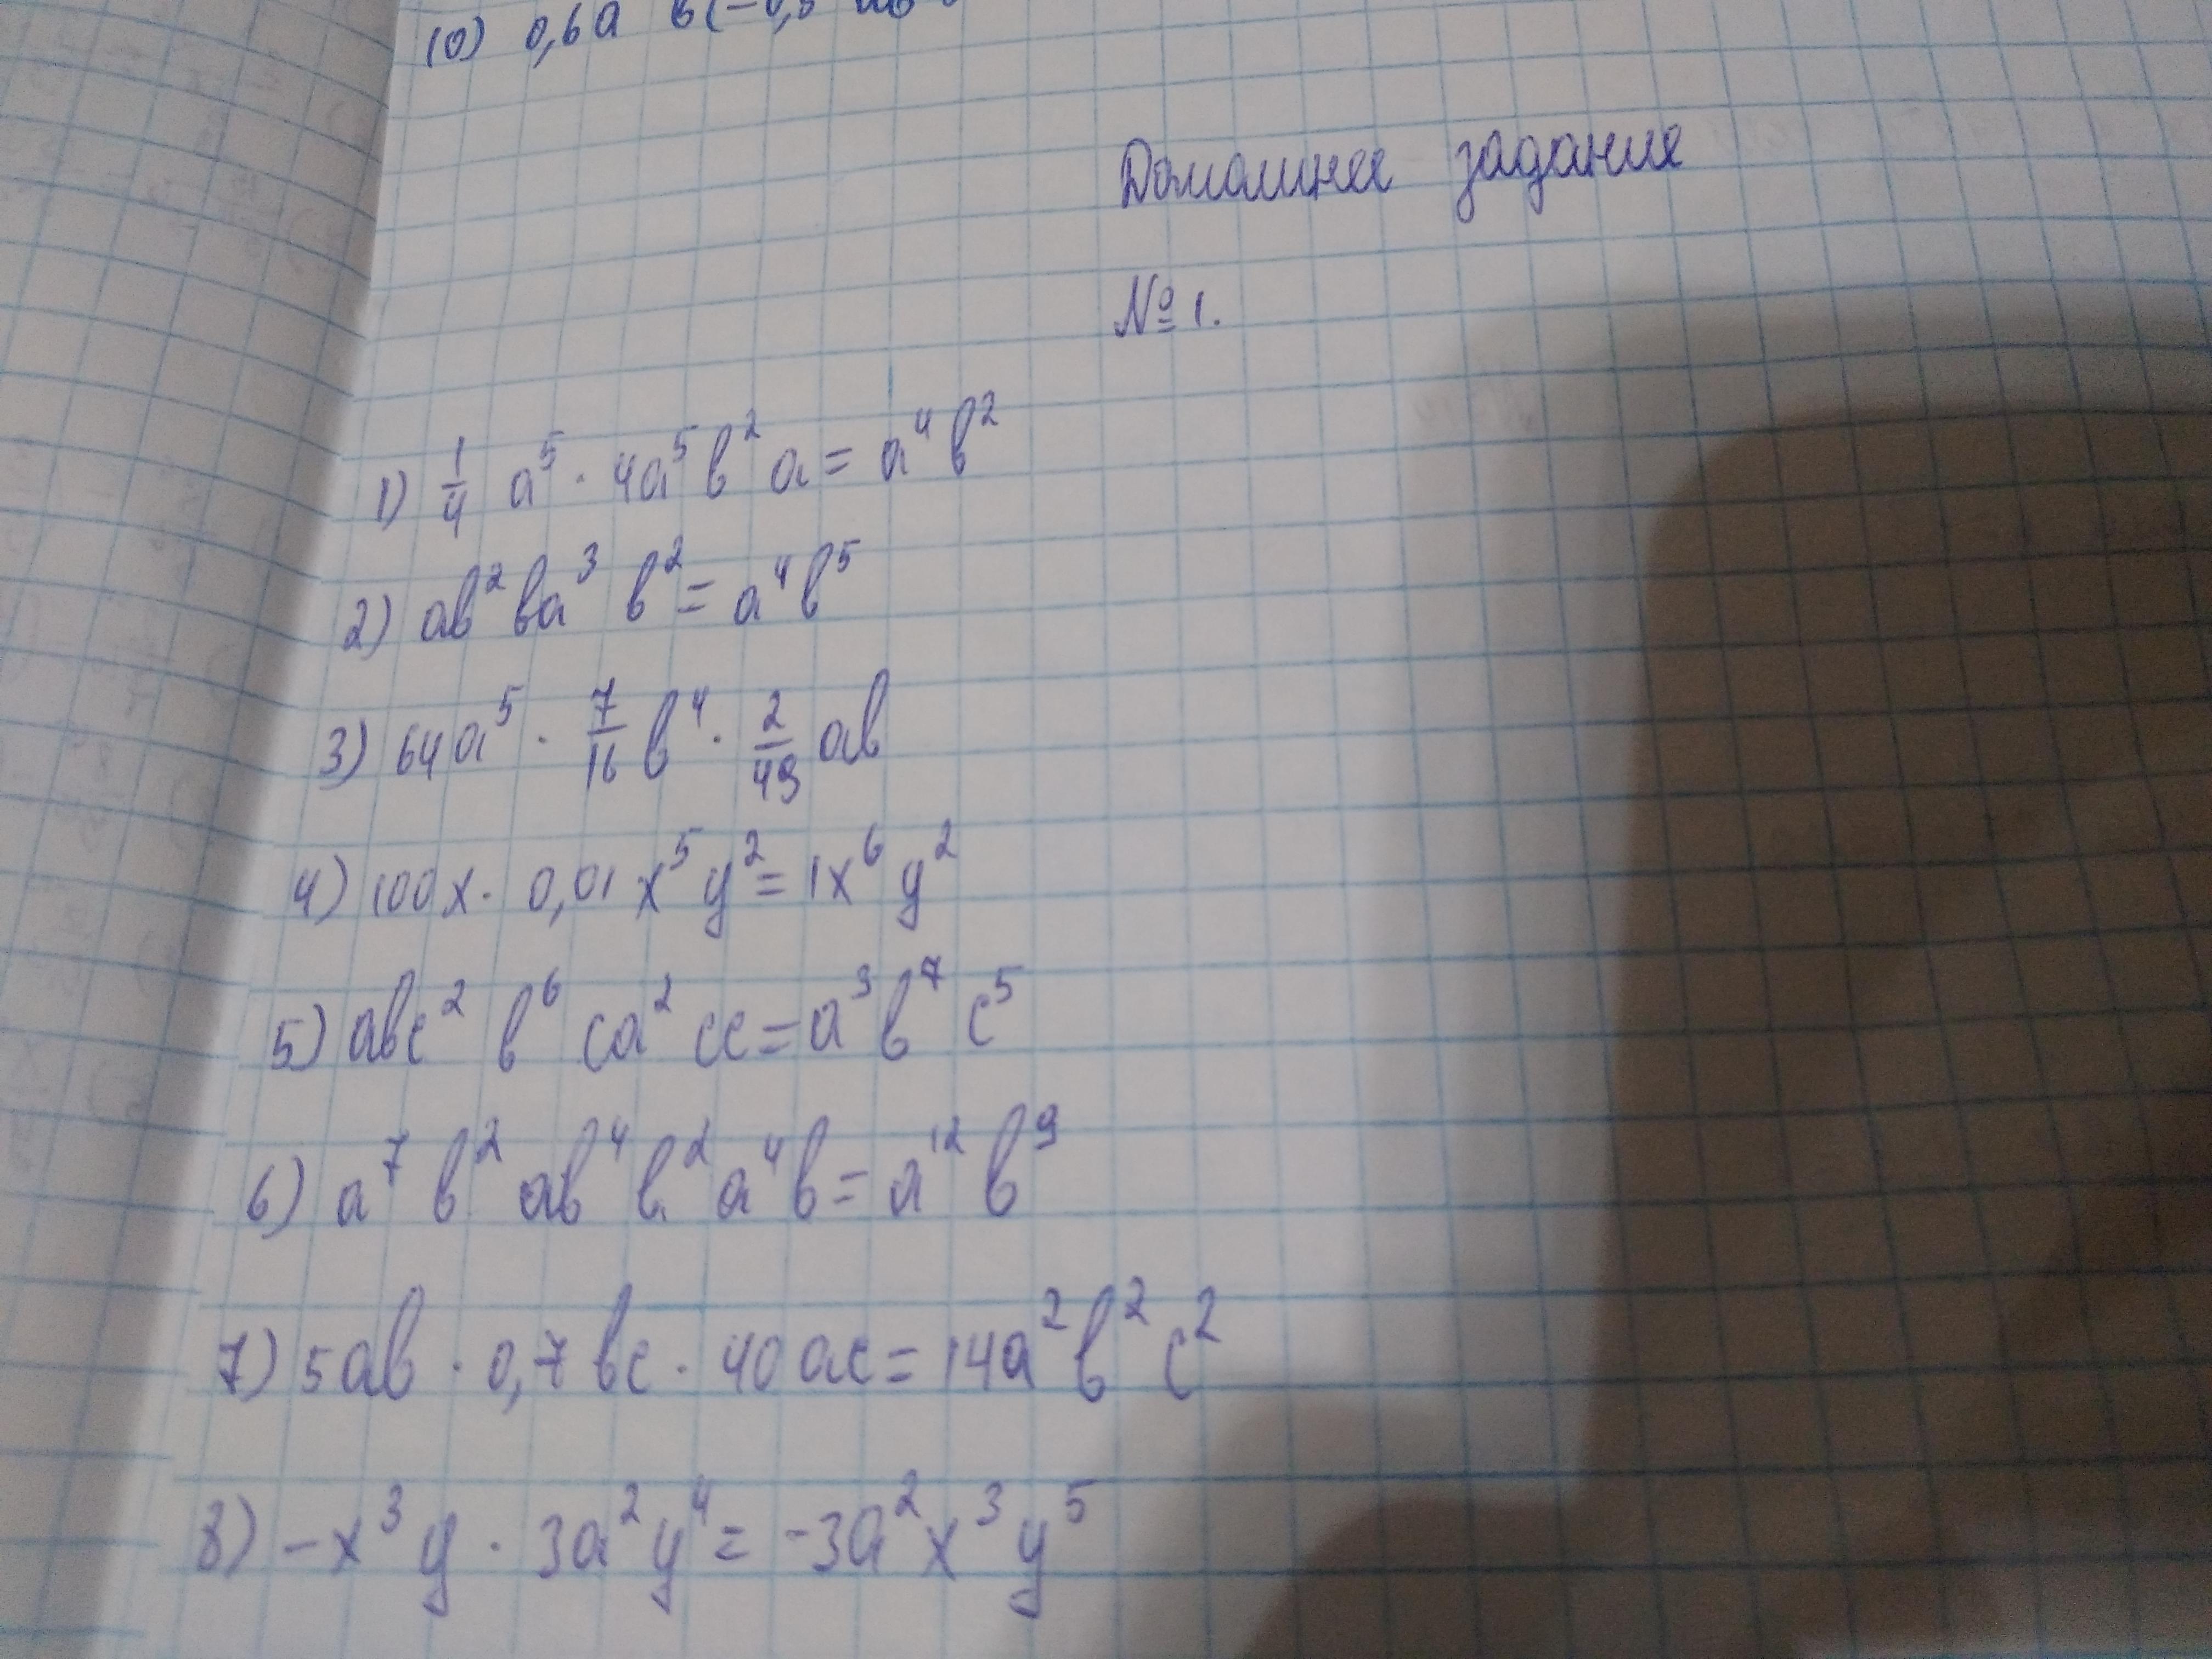 10) 0,6a
Домашнее задание
№1.
1) 1/4 a⁵ · 4a⁵b²a = a⁴b²
2) ab²ba³b² = a⁴b⁵
3) 64a⁵ · 7/16 b⁴ · 2/49 ab
4) 100x · 0,01x⁵y² = 1x⁶y²
5) abc² b⁶ ca² cc = a³b⁷c⁵
6) a⁷b²ab⁴b²a⁴b = a¹²b⁹
7) 5ab · 0,7bc · 40ac = 14a²b²c²
8) -x³y · 3a²y⁴ = -3a²x³y⁵